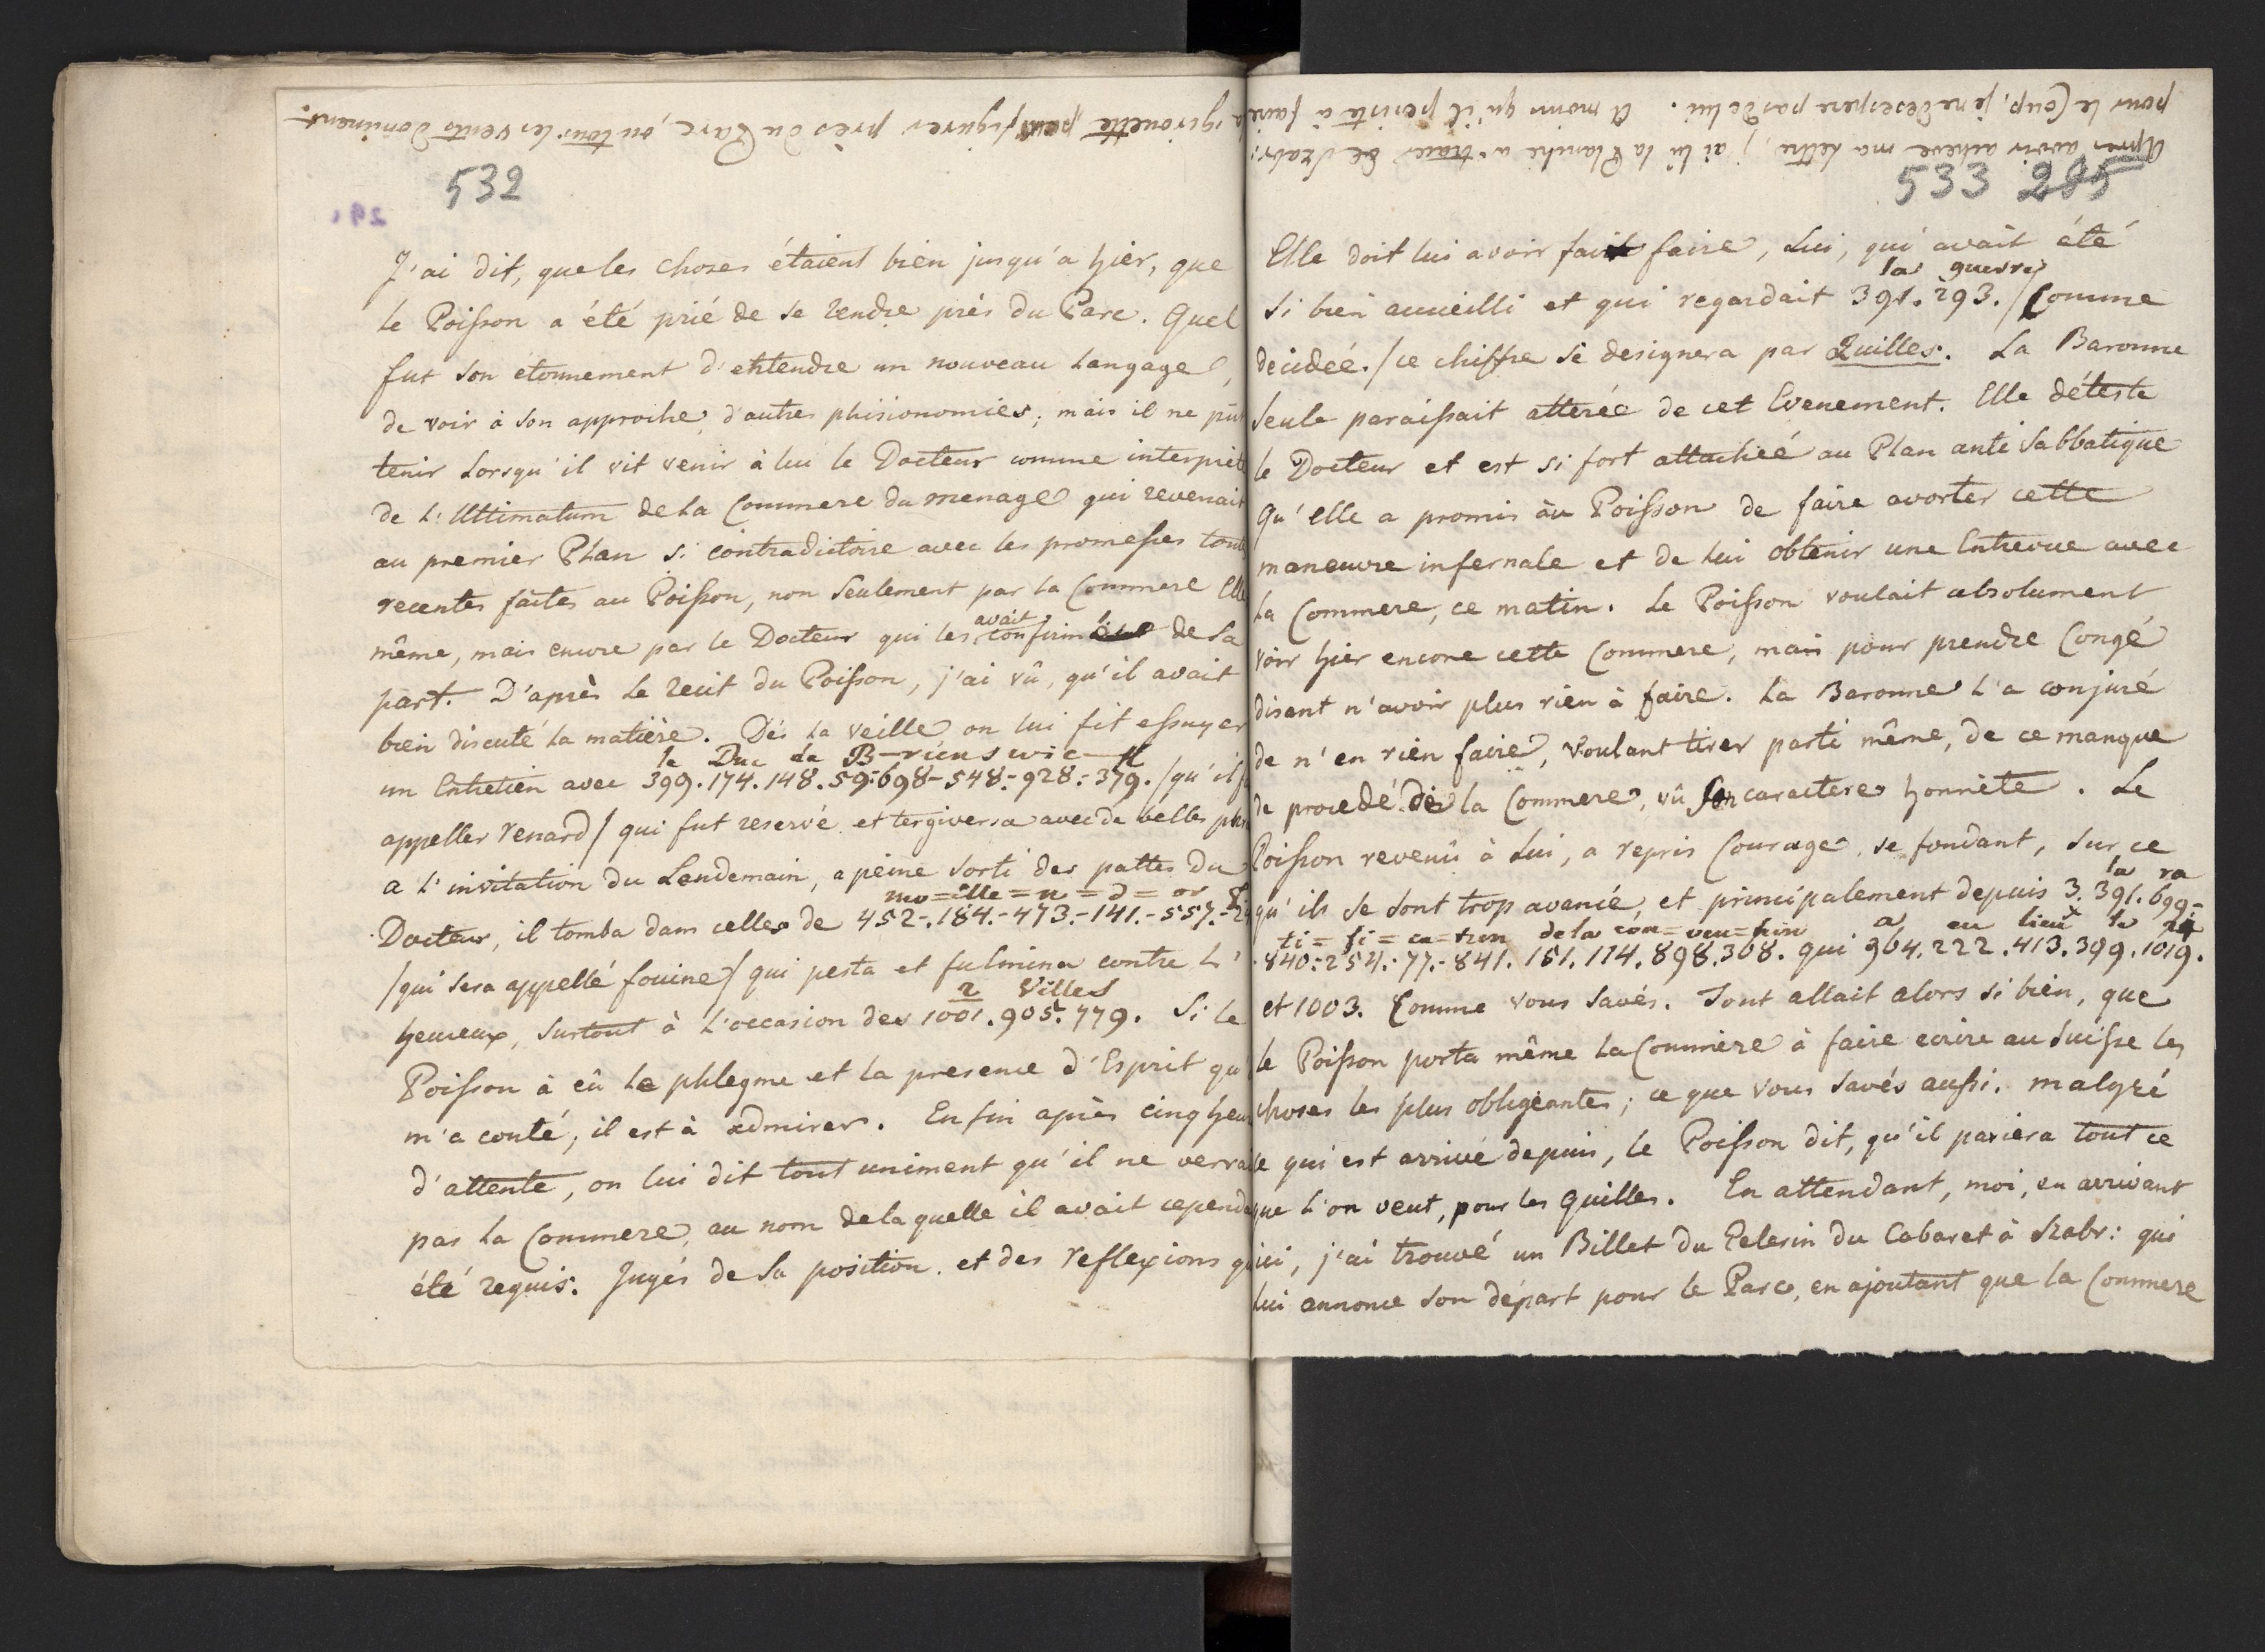 Apres avoir achevé ma Lettre, j'ai lû la Planche a tracer de Szabr:
pour le Coup, je ne desespere pas de lui. A moins qu'il persiste à faire
la girouette peut figurer près du Parc, ou tous les vents dominent.
532
J'ai dit, que les choses étaient bien jusqu'a hier, que
le Poisson a été prié de se rendre près du Parc. Quel
fut son etonnement d'entendre un nouveau Langage,
de voir à son approche, d'autres phisionomies; mais il ne pût
tenir Lorsqu'il vit venir à lui le Docteur comme interprête
de L'Ultimatum de la Commere du menage qui revenait
au premier Plan si contradictoire avec les promesses toute
recentes faites au Poisson, non seulement par la Commere Elle
même, mais encore par le Docteur qui les avait confirmé de sa
part. D'après le recit du Poisson, j'ai vû, qu'il avait
bien discuté la matière. Dès la veille on lui fit essuyer
le Duc de B-run s wic-k
un Entretien avec 399.174.148.59-698-548-928-379. /qu'il
appeller renard/ qui fut reservé et tergiversa avec de belles
a l'invitation du Lendemain, a peine sorti des pattes du
mo=ille=n=d=or
Docteur, il tomba dans celles de 452-184-473-141-557-
/qui sera appellé fouine/ qui pesta et fulmina contre L'
2 Villes
heureux, surtout à L'occasion des 1001.905.779. Si le
Poisson à eû le phlegme et la presence d'Esprit qu'
m'a conté, il est à admirer. Enfin après cinq heures
d'attente, on lui dit tout uniment qu'il ne verra
pas la Commere, au nom de laquelle il avait cependant
été requis. Jugés de sa position et des reflexions
533 285
Elle doit lui avoir fait faire, Lui, qui avait été
la guerre
si bien accueilli et qui regardait 391.293. /Comme
decidée./ ce chiffre se designera par Quilles. La Baronne
seule paraissait atterée de cet Evenement. Elle déteste
le Docteur et est si fort attachée au Plan anti Sabbatique
Qu'elle a promis au Poisson de faire avorter cette
maneuvre infernale et de lui obtenir une Entrevue avec
la Commere, ce matin. Le Poisson voulait absolument
voir hier encore cette Commere, mais pour prendre Congé
disant n'avoir plus rien à faire. La Baronne L'a conjuré
de n'en rien faire, voulant tirer parti même, de ce manque
de procedé de la Commere, vû son caractere honnête. Le
Poisson revenû à Lui, a repris Courage, se fondant, sur ce
la ra
qu'ils se sont trop avancé, et principalement depuis 3.391.699-
ti=fi=ca=tion de la con=ven=tion a eu lieu le
840-254-77-841.151.114.898.308. qui 964.222.413.399.1019.
et 1003. Comme vous savés. Tout allait alors si bien, que
le Poisson porta même la Commère à faire ecrire au Suisse les
choses les plus obligeantes; ce que vous savés aussi. malgré
ce qui est arrivé depuis, le Poisson dit, qu'il pariera tout ce
que l'on veut, pour les Quilles. En attendant, moi, en arrivant
ici, j'ai trouvé un Billet du Pelerin du Cabaret à Szabr: qui
lui annonce son départ pour le Parc, en ajoutant que la Commere